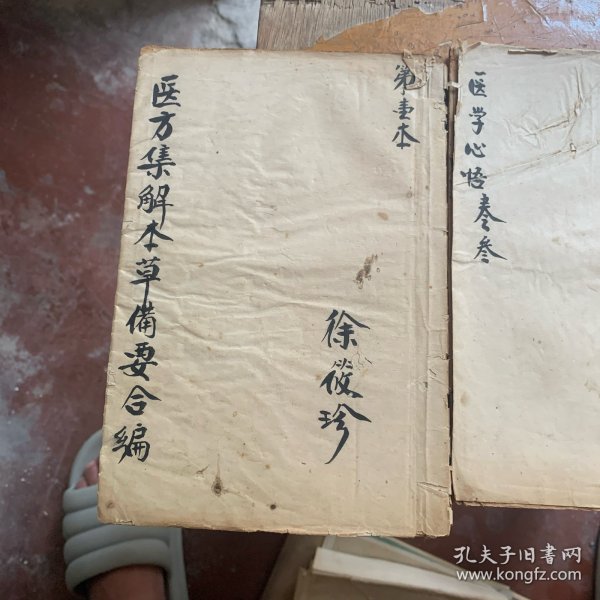 医方集解本草備要合編
第壹本
徐筱珍
医学心悟卷叁
孔夫子旧書网
www.kongfz.com